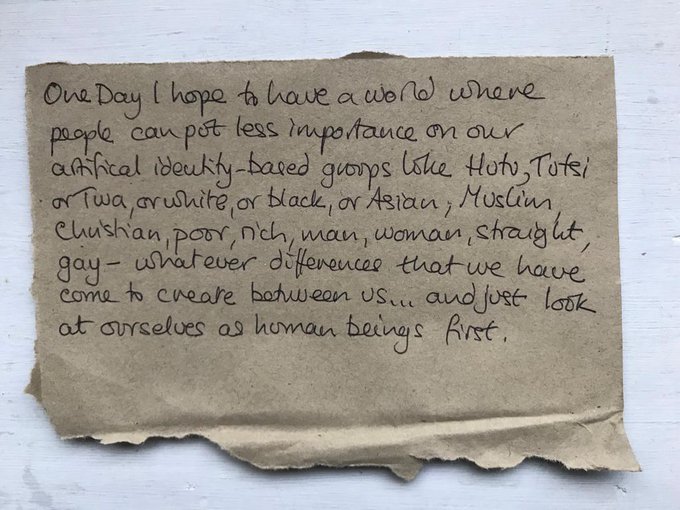 One Day I hope to have a world where
people can put less importance on our
artifical identity-based groups like Hutu, Tutsi
or Twa, or white, or black, or Asian, Muslim,
Christian, poor, rich, man, woman, straight,
gay - whatever differences that we have
come to create between us... and just look
at ourselves as human beings first.